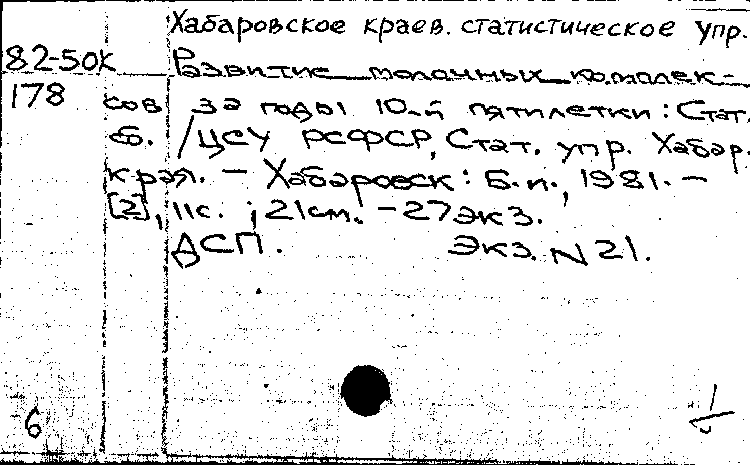 Хабаровское краев. статистическое упр.
82-50к Развитие молочных комплек-
178 сов за годы 10-й пятилетки: Стат.
сб. /ЦСУ РСФСР, Стат. упр. Хабар.
края. – Хабаровск: Б.и., 1981. –
[2], 11с. ; 21см. – 27экз.
ДСП. Экз. N 21.
6